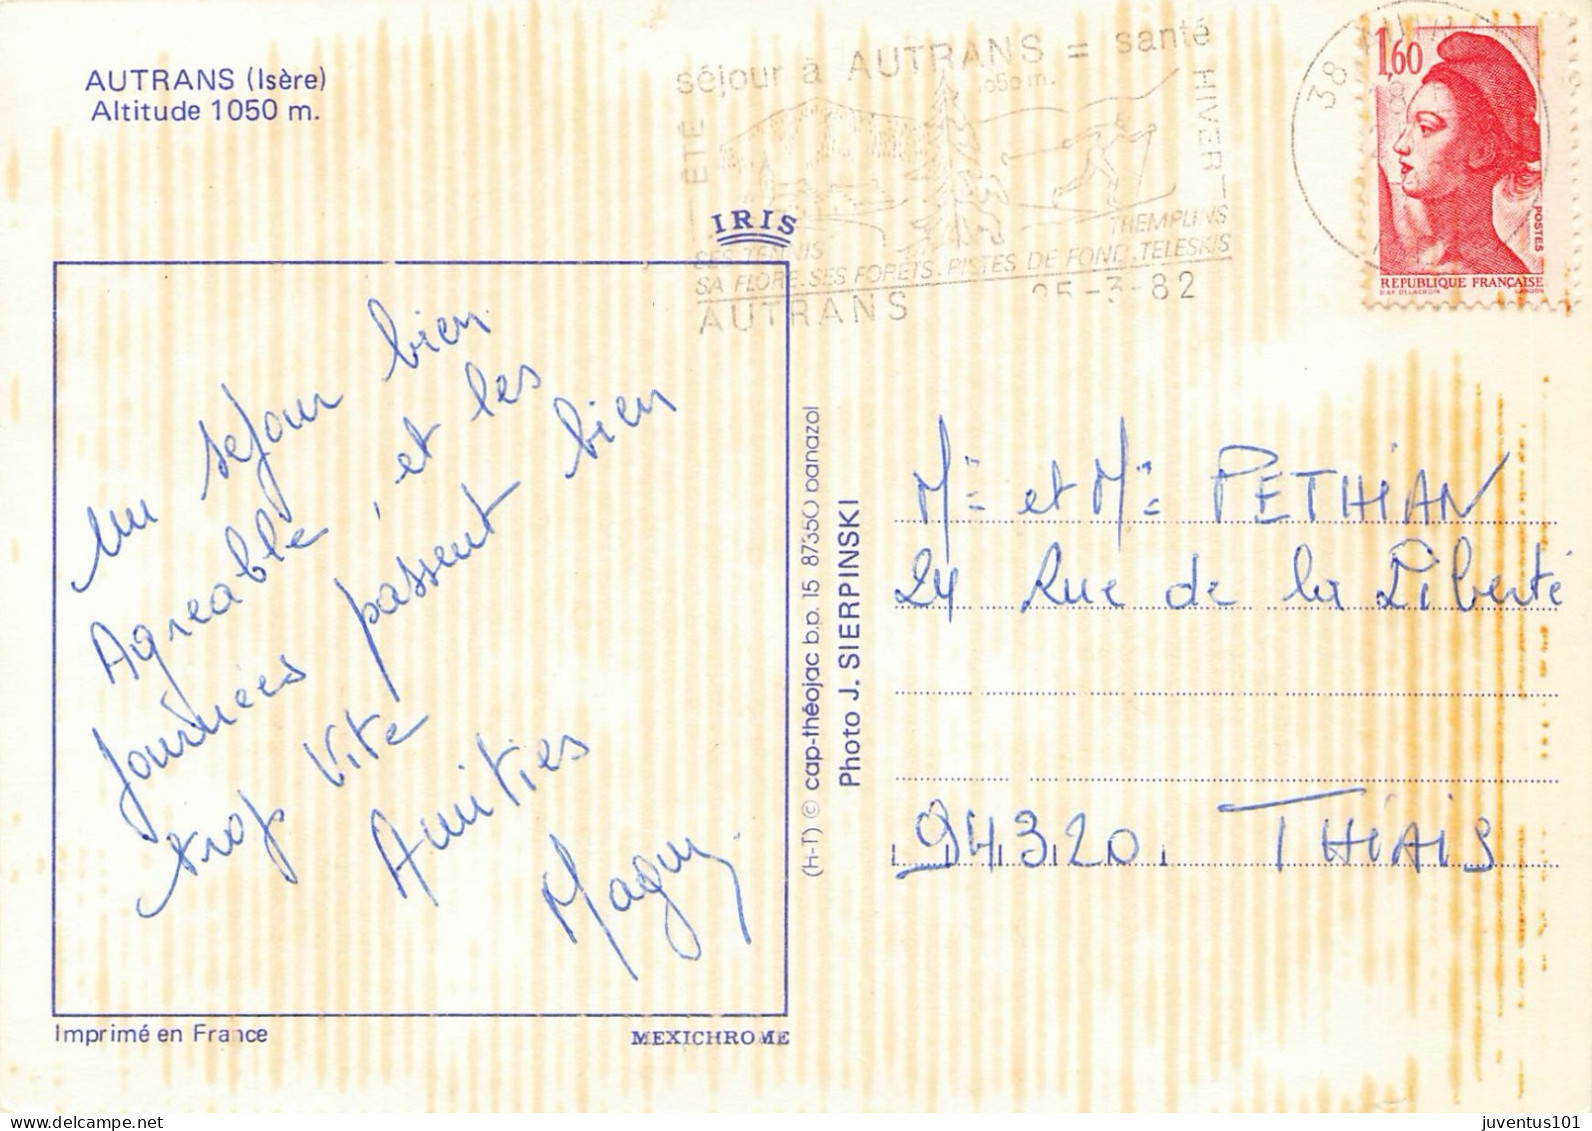 AUTRANS (Isère)
Altitude 1050 m.
séjour à AUTRANS = santé
ETE
HIVER
TREMPLINS
SES TENNIS
SA FLORE. SES FORETS. PISTES DE FOND. TELESKIS
AUTRANS
25-3-82
38
1,60
POSTES
REPUBLIQUE FRANÇAISE
D'AP. DELACROIX GANDON
IRIS
un séjour bien
Agreable, et les
Journées passent bien
trop vite
Amitiés
Maguy.
(H-T) © cap-théojac b.p. 15 87350 panazol
Photo J. SIERPINSKI
Mr et Me PETHIAN
24 Rue de la Liberté
94320 THIAIS
Imprimé en France
MEXICHROME
delcampe.net
juventus101